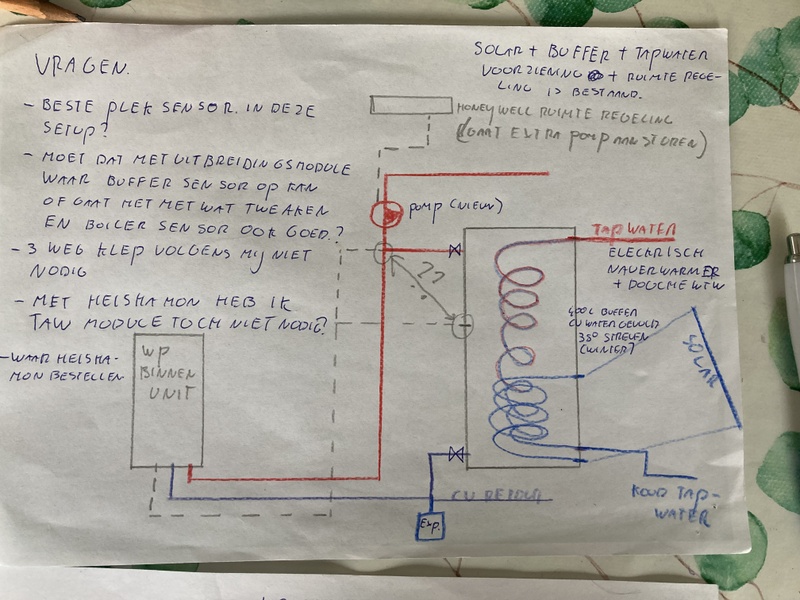 VRAGEN.
- BESTE PLEK SENSOR. IN DEZE
SETUP?
- MOET DAT MET UITBREIDINGSMODULE
WAAR BUFFER SENSOR OP KAN
OF GAAT MET MET WAT TWEAKEN
EN BOILER SENSOR OOK GOED.?
- 3 WEG KLEP VOLGENS MIJ NIET
NODIG
- MET HEISHAMON HEB IK
TAW MODULE TOCH NIET NODIG?
- WAAR HEISHA-
MON BESTELLEN
SOLAR + BUFFER + TAPWATER
VOORZIENING + RUIMTE REGE-
LING IS BESTAAND.
HONEYWELL RUIMTE REGELING
(GAAT EXTRA POMP AANSTUREN)
POMP (NIEUW)
??
TAPWATER
ELECKRISCH
NAVERWARMER
+ DOUCHE WTW
400L BUFFER
CV WATER GEVULD
35° STREVEN
(WINTER)
SOLAR
WP
BINNEN
UNIT
CV RETOUR
Exp.
KOUD TAP-
WATER